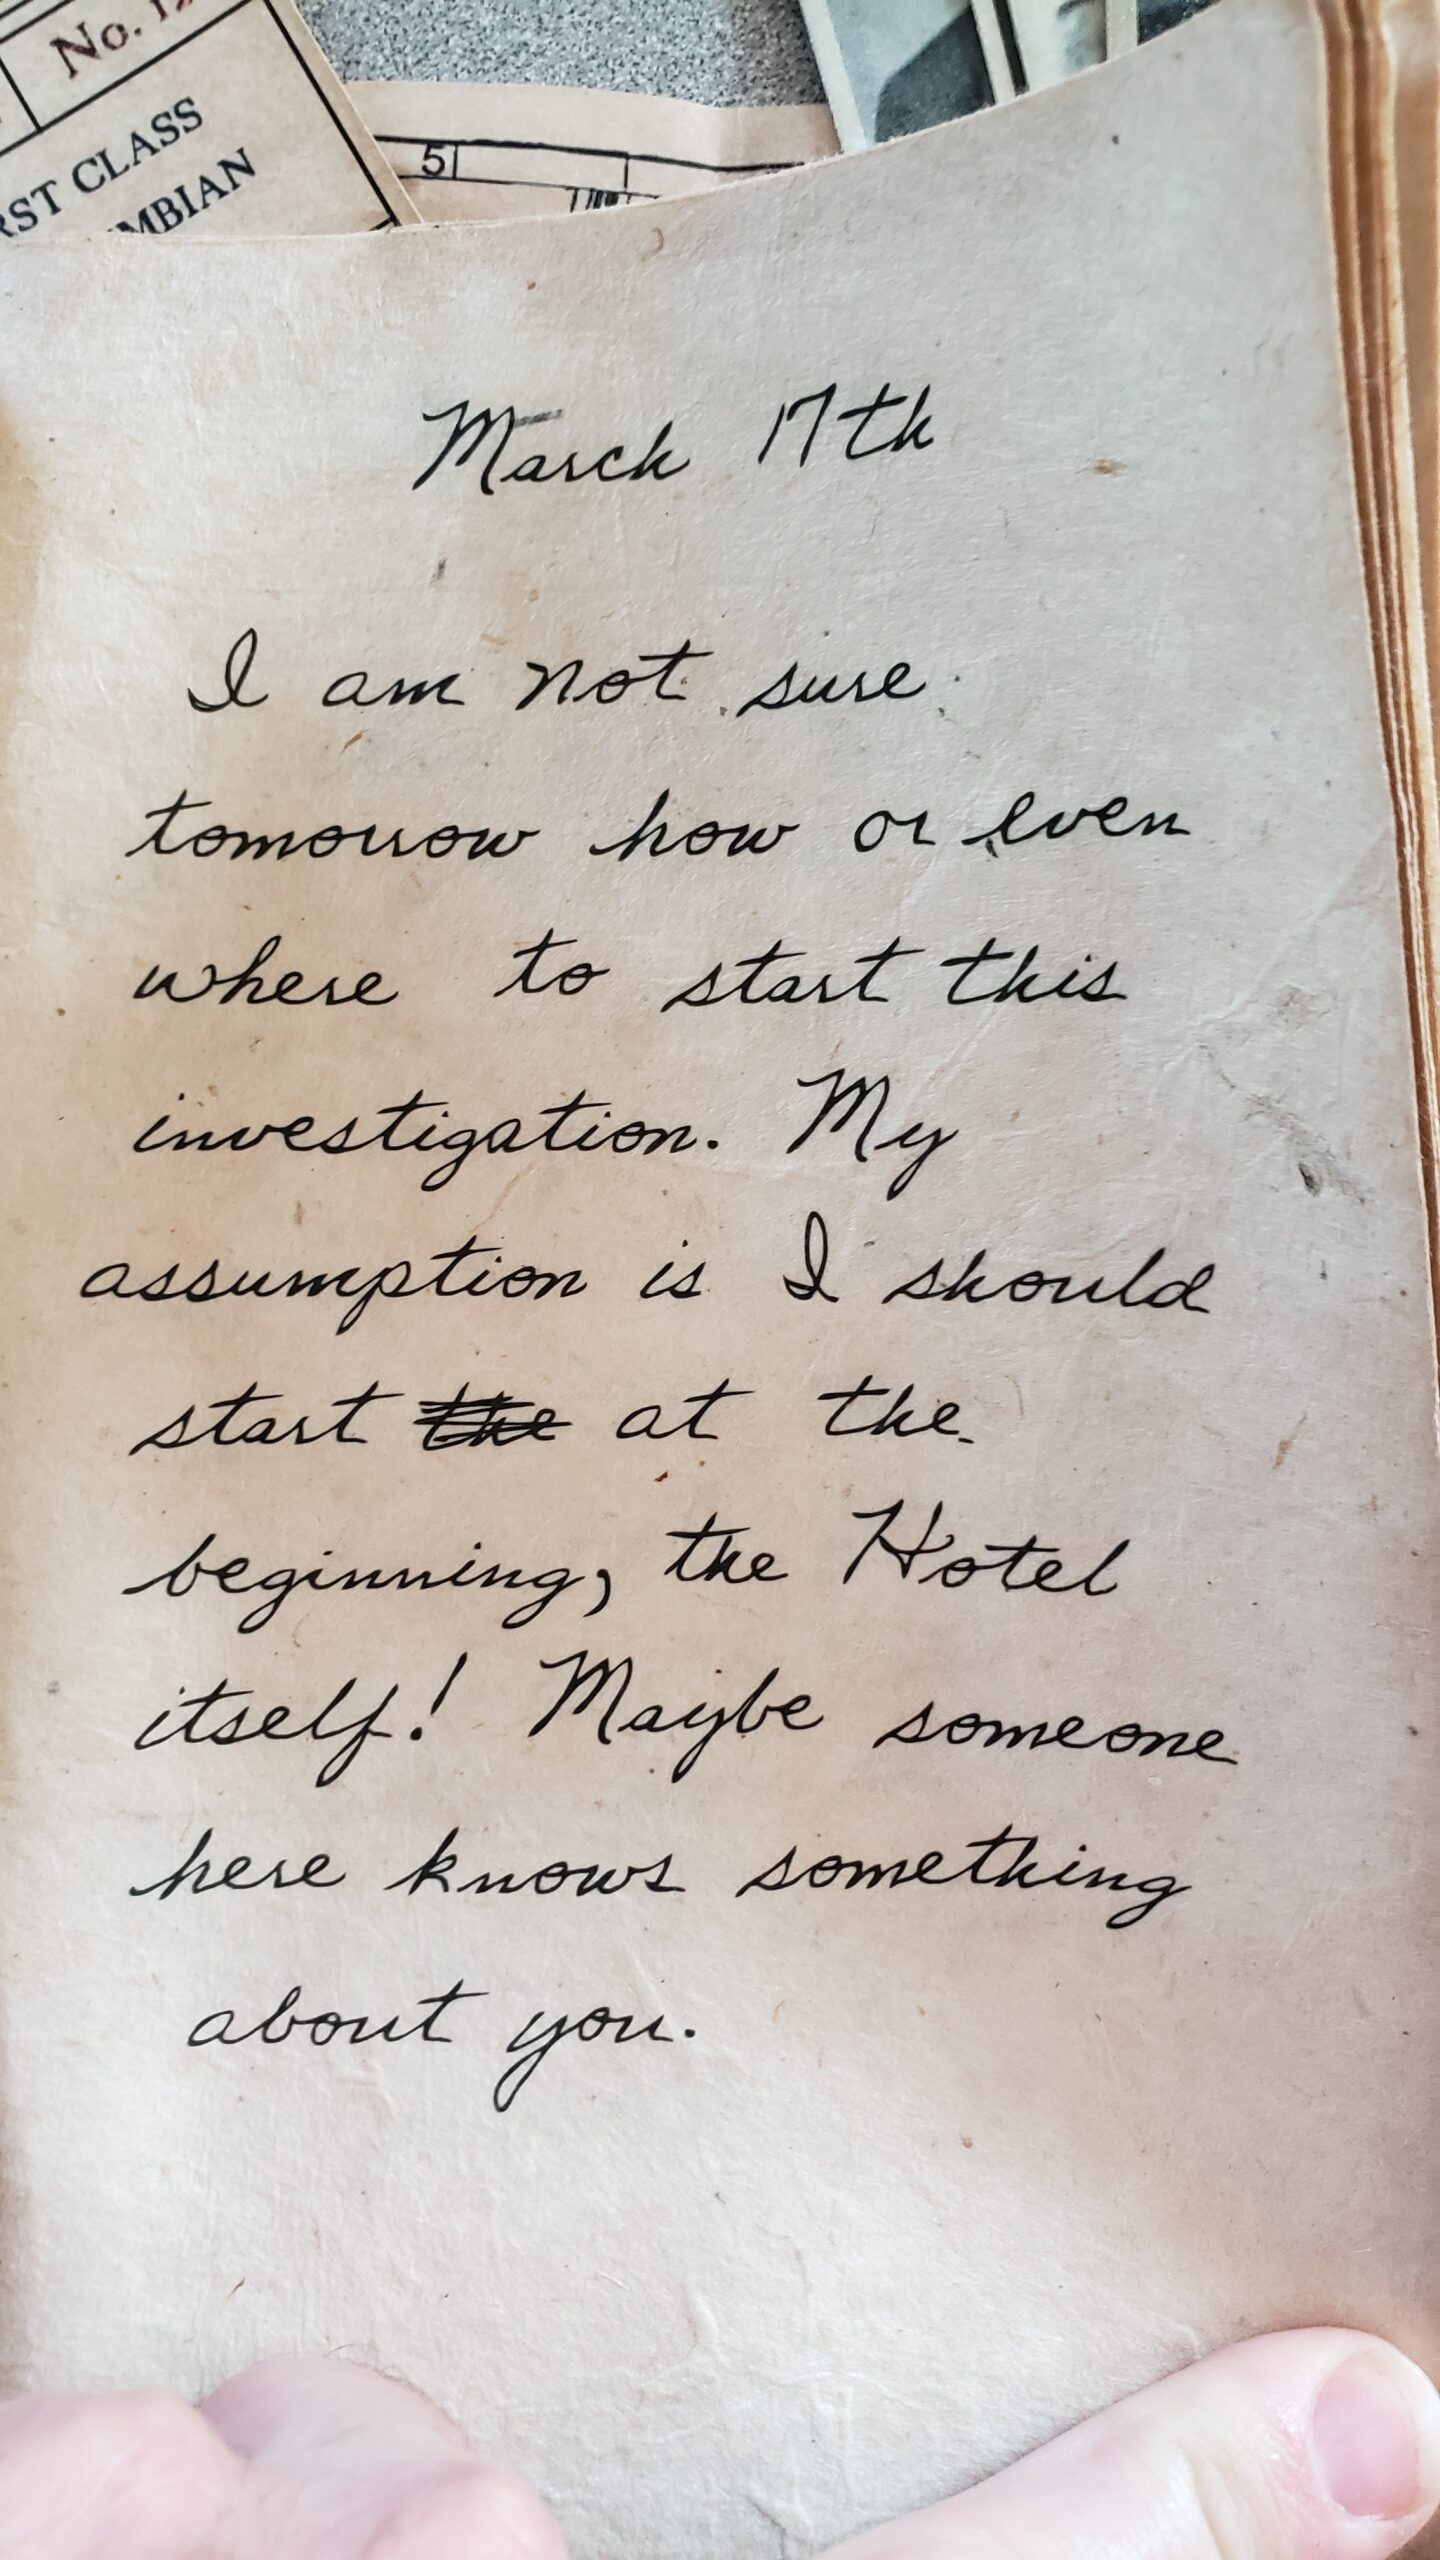 No.
CLASS
51
March 17th
I am not sure
tomorrow how or even
where to start this
investigation. My
assumption is I should
start the at the
beginning, the Hotel
itself! Maybe someone
here knows something
about you.